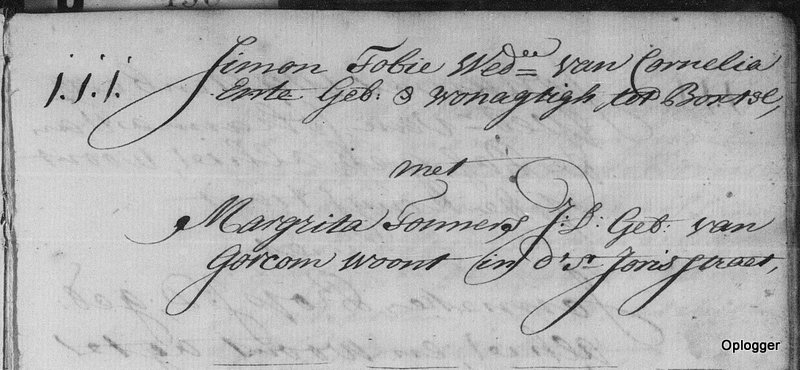 1.1.1. Simon Tobie Wed.ee van Cornelia
Ente Geb: & wonagtigh tot Boxtel,
met
Margrita Tonners J:D: Geb: van
Gorcom woont in d' St Joris straet,
Oplogger